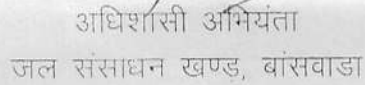 अधिशासी अभियंता
जल संसाधन खण्ड, बांसवाडा